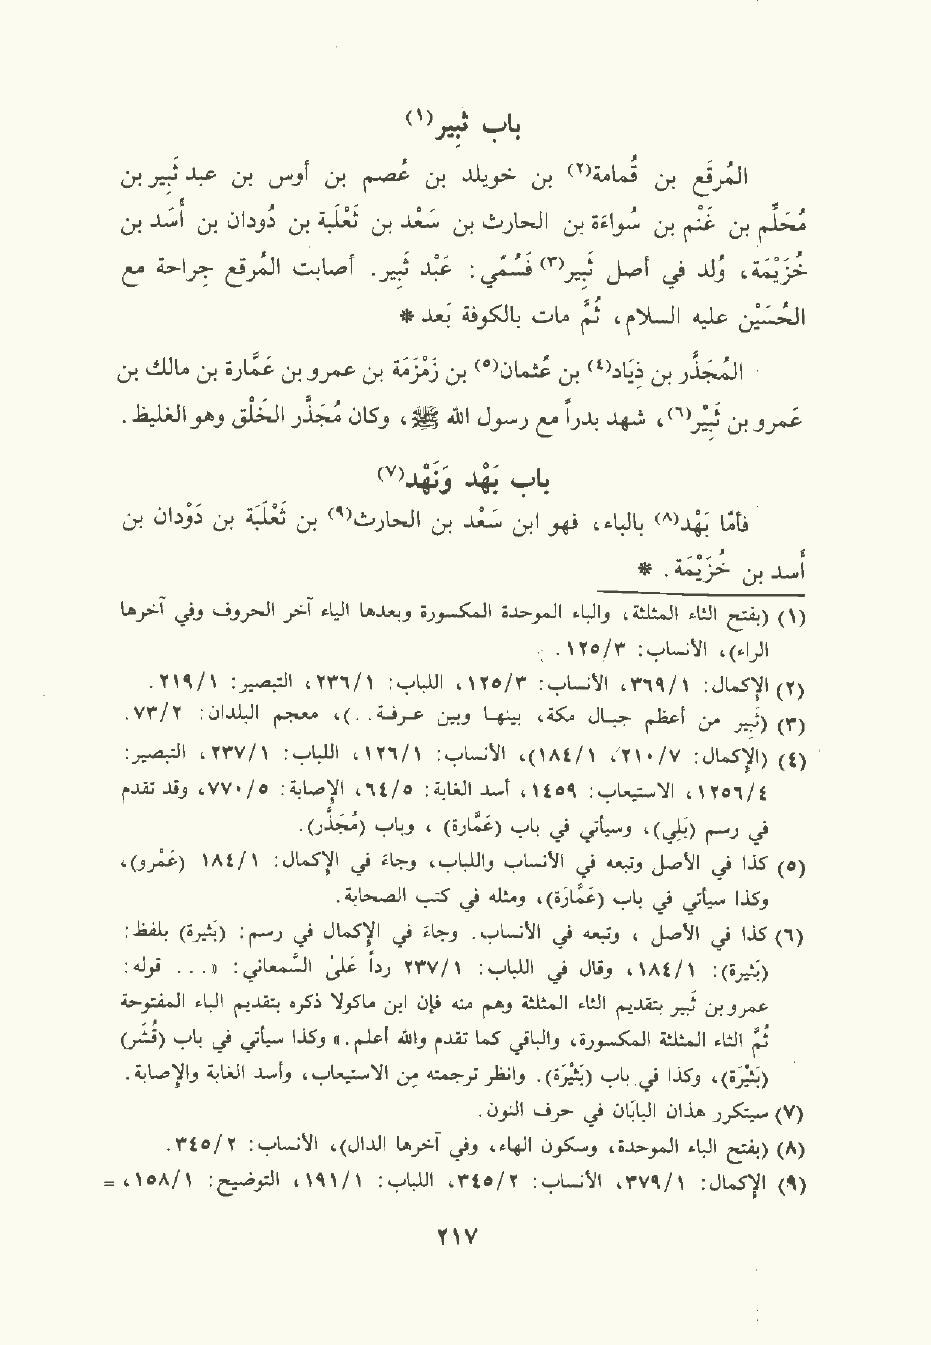 باب ثَبِير(١)
المُرَقَّع بن قُمامة(٢) بن خويلد بن عُصم بن أوس بن عبد ثَبِير بن
مُحَلِّم بن غَنْم بن سُواءة بن الحارث بن سَعْد بن ثَعْلَبة بن دُودان بن أَسَد بن
خُزَيْمَة، وُلد في أصل ثَبِير(٣) فسُمّي: عَبْد ثَبِير. أصابت المُرقع جِراحة مع
الحُسَيْن عليه السلام، ثُمَّ مات بالكوفة بَعد *
المُجَذَّر بن ذِيَاد(٤) بن عُثمان(٥) بن زَمْزَمَة بن عمرو بن عَمَّارة بن مالك بن
عَمرو بن ثَبِيْر(٦)، شهد بدراً مع رسول الله ﷺ، وكان مُجَذَّر الخَلْق وهو الغليظ.
باب بَهْد وَنَهْد(٧)
فأمّا بَهْد(٨) بالباء، فهو ابن سَعْد بن الحارث(٩) بن ثَعْلَبَة بن دَوْدان بن
أَسد بن خُزَيْمَة. *
(١) (بفتح الثاء المثلثة، والباء الموحدة المكسورة وبعدها الياء آخر الحروف وفي آخرها
الراء)، الأنساب: ١٢٥/٣.
(٢) الإكمال: ٣٦٩/١، الأنساب: ١٢٥/٣، اللباب: ٢٣٦/١، التبصير: ٢١٩/١.
(٣) (ثَبِير من أعظم جبال مكة، بينها وبين عرفة..)، معجم البلدان: ٧٣/٢.
(٤) (الإكمال: ٢١٠/٧، ١٨٤/١)، الأنساب: ١٢٦/١، اللباب: ٢٣٧/١، التبصير:
١٢٥٦/٤، الاستيعاب: ١٤٥٩، أسد الغابة: ٦٤/٥، الإصابة: ٧٧٠/٥، وقد تقدم
في رسم (بَلِي)، وسيأتي في باب (عَمَّارة) ، وباب (مُجَذَّر).
(٥) كذا في الأصل وتبعه في الأنساب واللباب، وجاء في الإكمال: ١٨٤/١ (عَمْرو)،
وكذا سيأتي في باب (عَمَّارَة)، ومثله في كتب الصحابة.
(٦) كذا في الأصل ، وتبعه في الأنساب. وجاء في الإكمال في رسم: (بَثيرة) بلفظ:
(بَثِيرة): ١٨٤/١، وقال في اللباب: ٢٣٧/١ رداً عَلىٰ السَّمعاني: «... قوله:
عمرو بن ثَبير بتقديم الثاء المثلثة وهم منه فإن ابن ماكولا ذكره بتقديم الباء المفتوحة
ثُمَّ الثاء المثلثة المكسورة، والباقي كما تقدم والله أعلم.» وكذا سيأتي في باب (قُشَر)
(بَثيْرَة)، وكذا في باب (بَثيْرَة). وانظر ترجمته مِن الاستيعاب، وأسد الغابة والإصابة.
(٧) سيتكرر هذان البابَان في حرف النون.
(٨) (بفتح الباء الموحدة، وسكون الهاء، وفي آخرها الدال)، الأنساب: ٣٤٥/٢.
(٩) الإكمال: ٣٧٩/١، الأنساب: ٣٤٥/٢، اللباب: ١٩١/١، التوضيح: ١٥٨/١، =
٢١٧